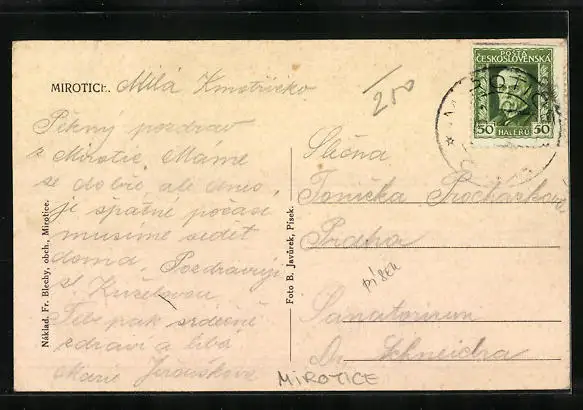 MIROTICE. Milá Kmotřičko
Pěkný pozdrav
z Mirotic. Máme
se dobře, ale dnes,
je špatné počasí
musíme sedět
doma. Pozdravuji
Tebe pak srdečně
zdraví a líbá
Marie
Náklad. Fr. Blechy, obch., Mirotice.
Foto B. Javůrek, Písek.
250
POŠTA
ČESKOSLOVENSKÁ
50 HALÉŘŮ 50
Slečna
Tonička
Praha
písek
Sanatorium
Dr. Schneidra
MIROTICE